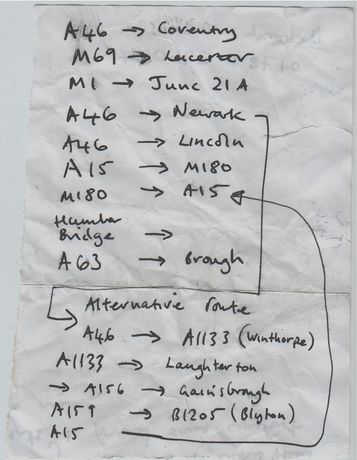 A46 → Coventry
M69 → Leicester
M1 → Junc 21A
A46 → Newark
A46 → Lincoln
A15 → M180
M180 → A15
Humber
Bridge →
A63 → Brough
Alternative route
A46 → A1133 (Winthorpe)
A1133 → Laughterton
→ A156 → Gainsbrough
A159 → B1205 (Blyton)
A15